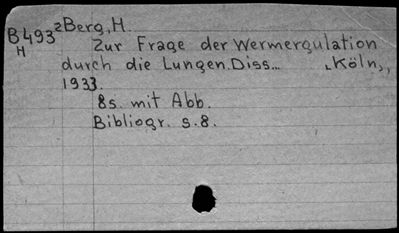 B493 2Berg, H.
H Zur Frage der Wermergulation
durch die Lungen. Diss... "Köln",
1933.
8s. mit Abb.
Bibliogr. s.8.